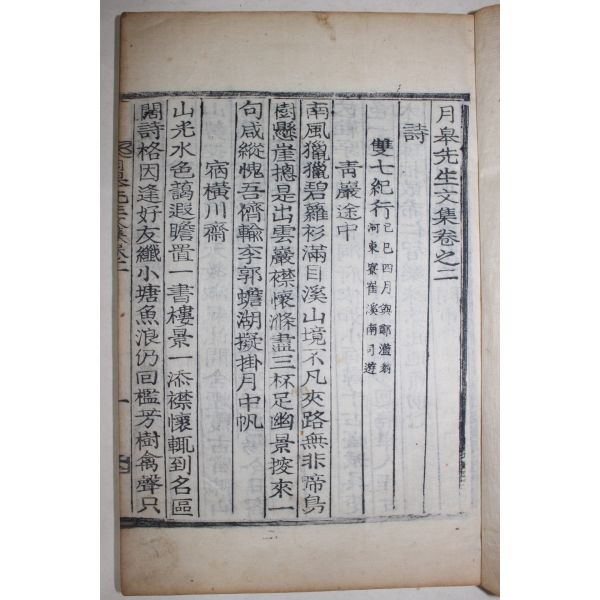 月皐先生文集卷之二
詩
雙七紀行 己巳四月與鄭溪南
河東寮崔溪南同遊
青巖途中
南風獵獵碧蘿衫滿目溪山境不凡夾路無非啼鳥
樹懸崖摠是出雲巖襟懷滌盡三杯足幽景挍來一
句咸縱愧吾儕輸李郭蟾湖擬掛月中帆
宿橫川齋
山光水色藹遐瞻置一書樓景一添襟懷輒到名區
闊詩格因逢好友纖小塘魚浪仍回檻芳樹禽聲只
月皐先生文集卷二
一